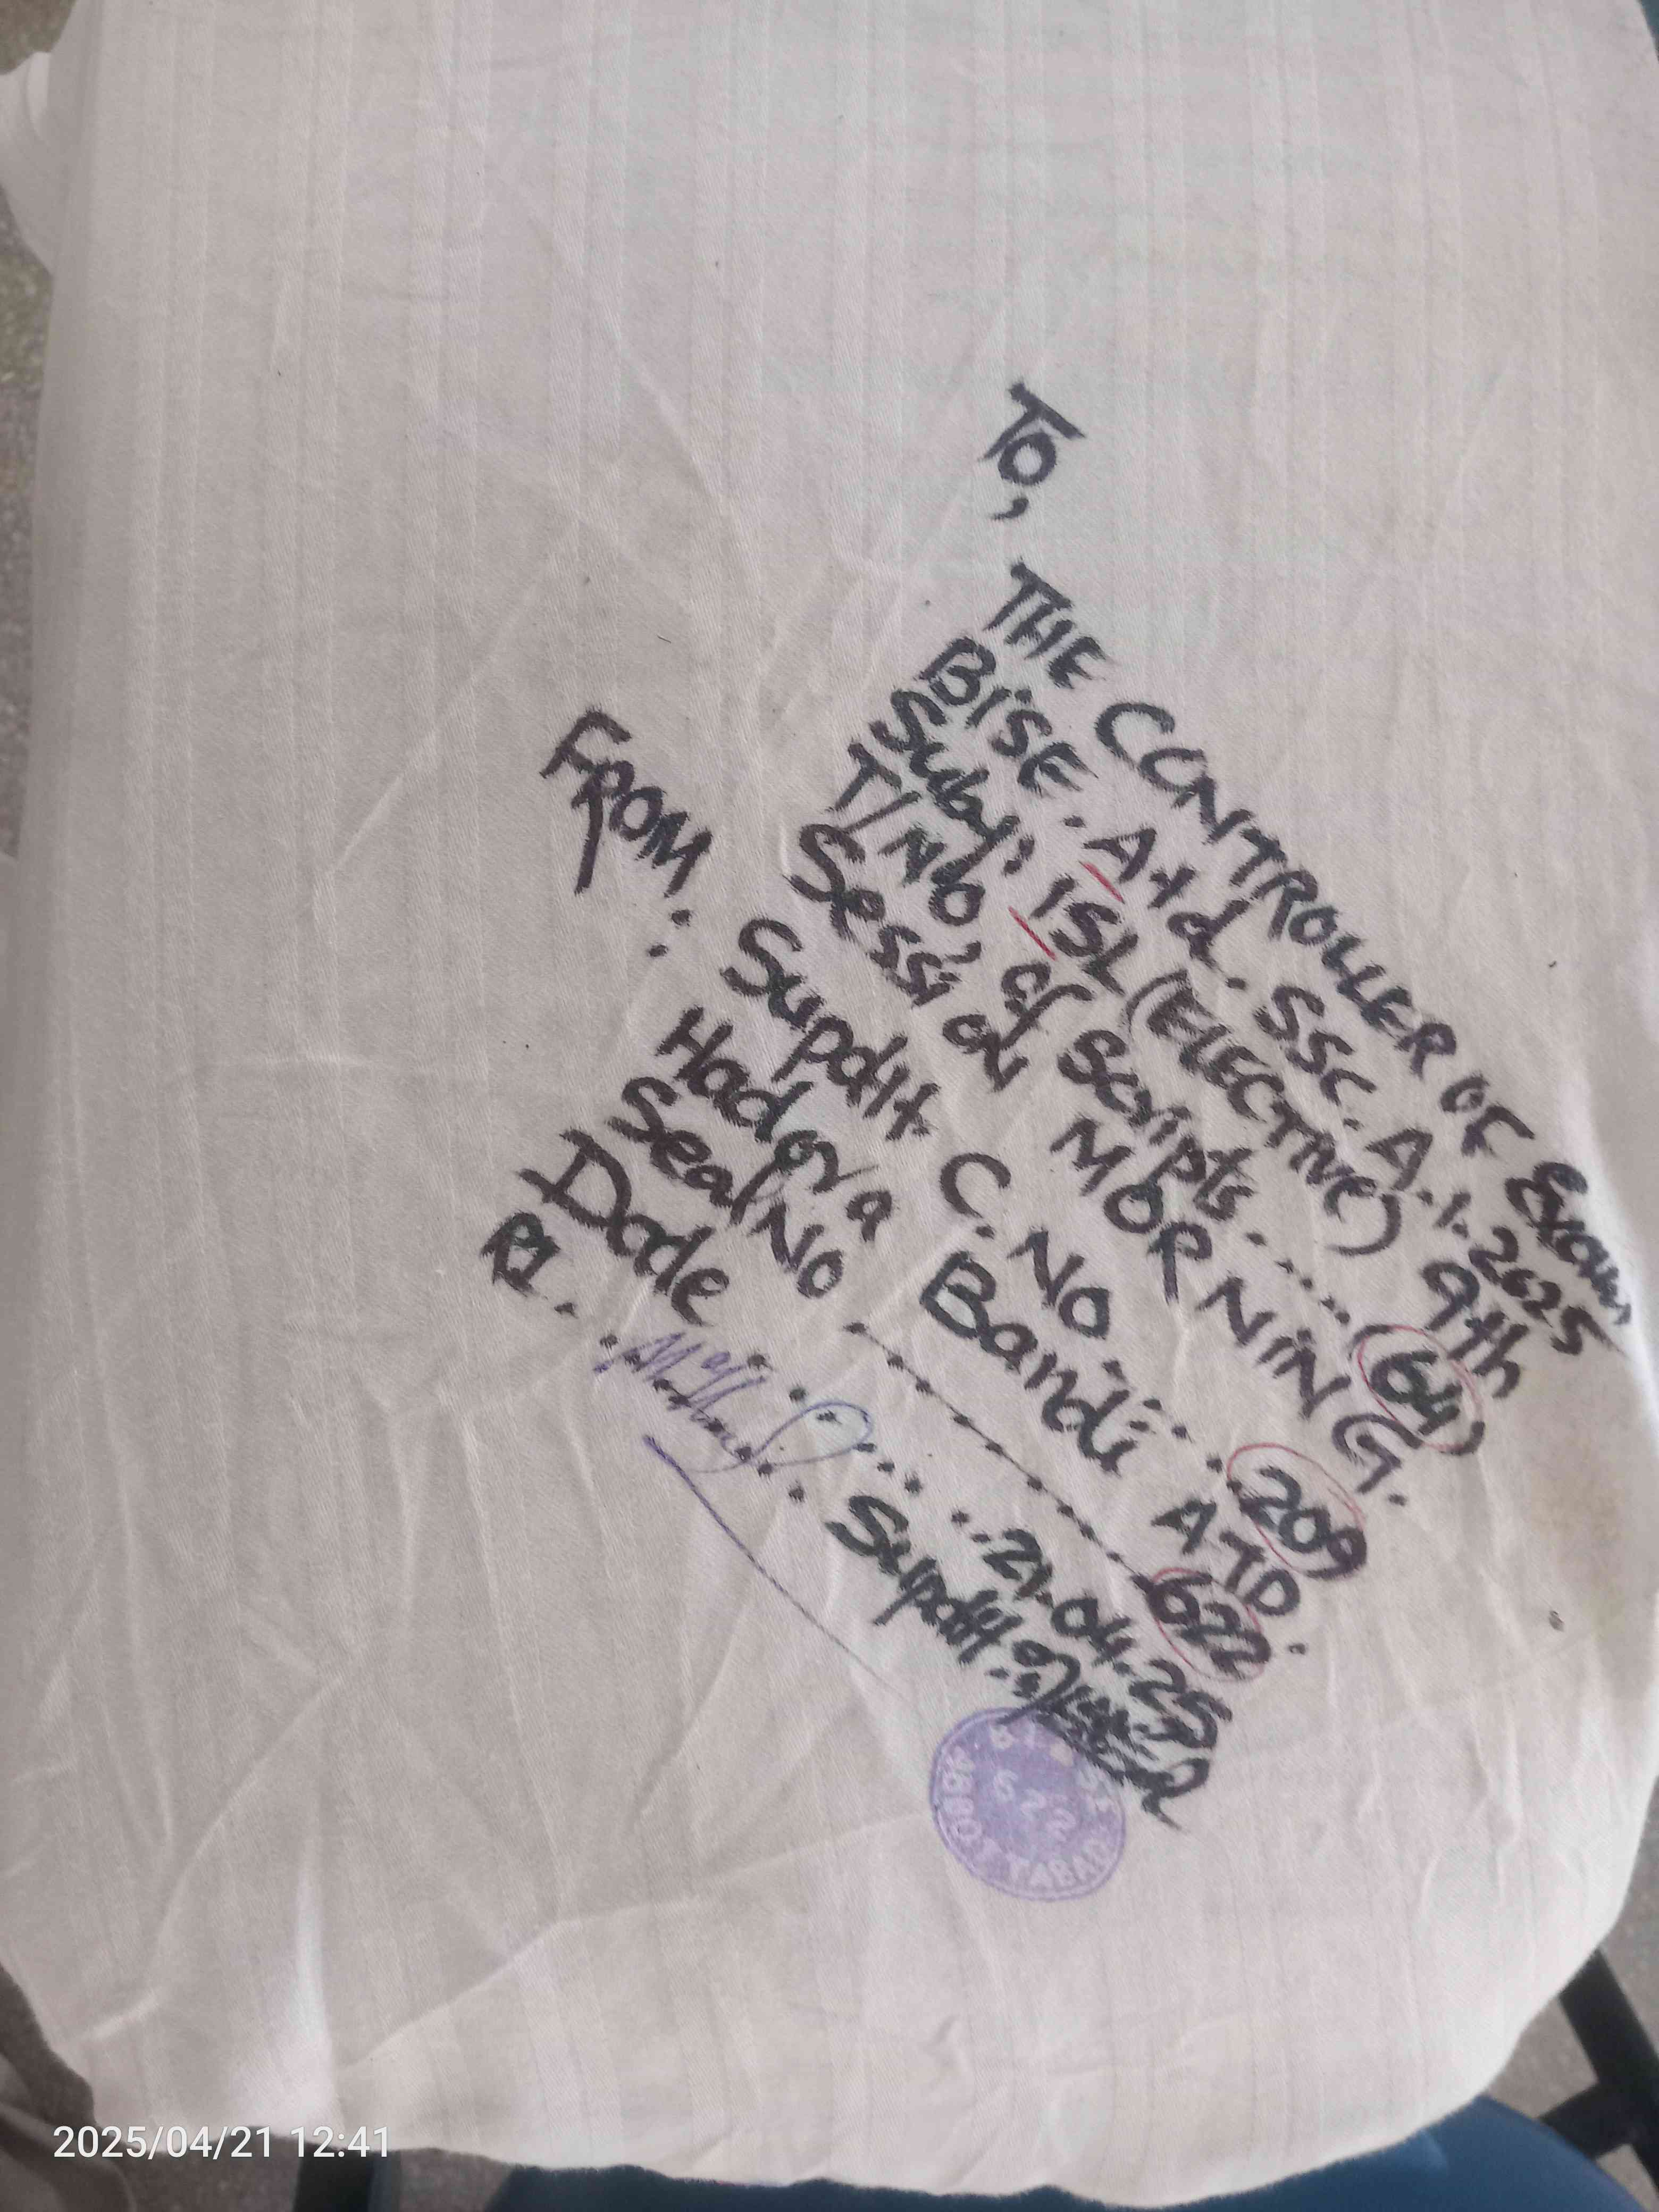 To,
THE CONTROLLER OF Exam
BISE. Atd. SSC. A.I. 2025
Subj: ISL (ELECTIVE) 9th
T/No; of Scripts ...... (64)
Session MORNING.
FROM: Supdtt. C. No. ..... 209
Hadora Bandi ATD.
Seal No ........ 622
Date ......... 21.04.25
Supdtt.
B.I.S.E
622
ABBOTTABAD
2025/04/21 12:41